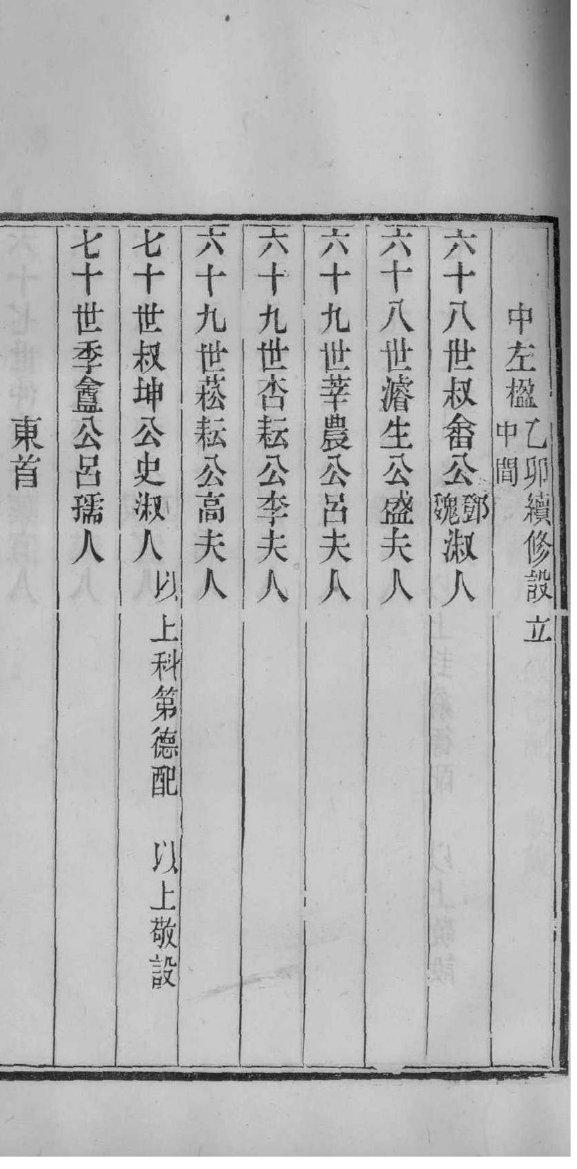 中左楹乙卯續修設立中間
六十八世叔畬公鄧魏淑人
六十八世濬生公盛夫人
六十九世莘農公呂夫人
六十九世杏耘公李夫人
六十九世菘耘公高夫人
七十世叔坤公史淑人以上科第德配 以上敬設
七十世季盦公呂孺人
東首